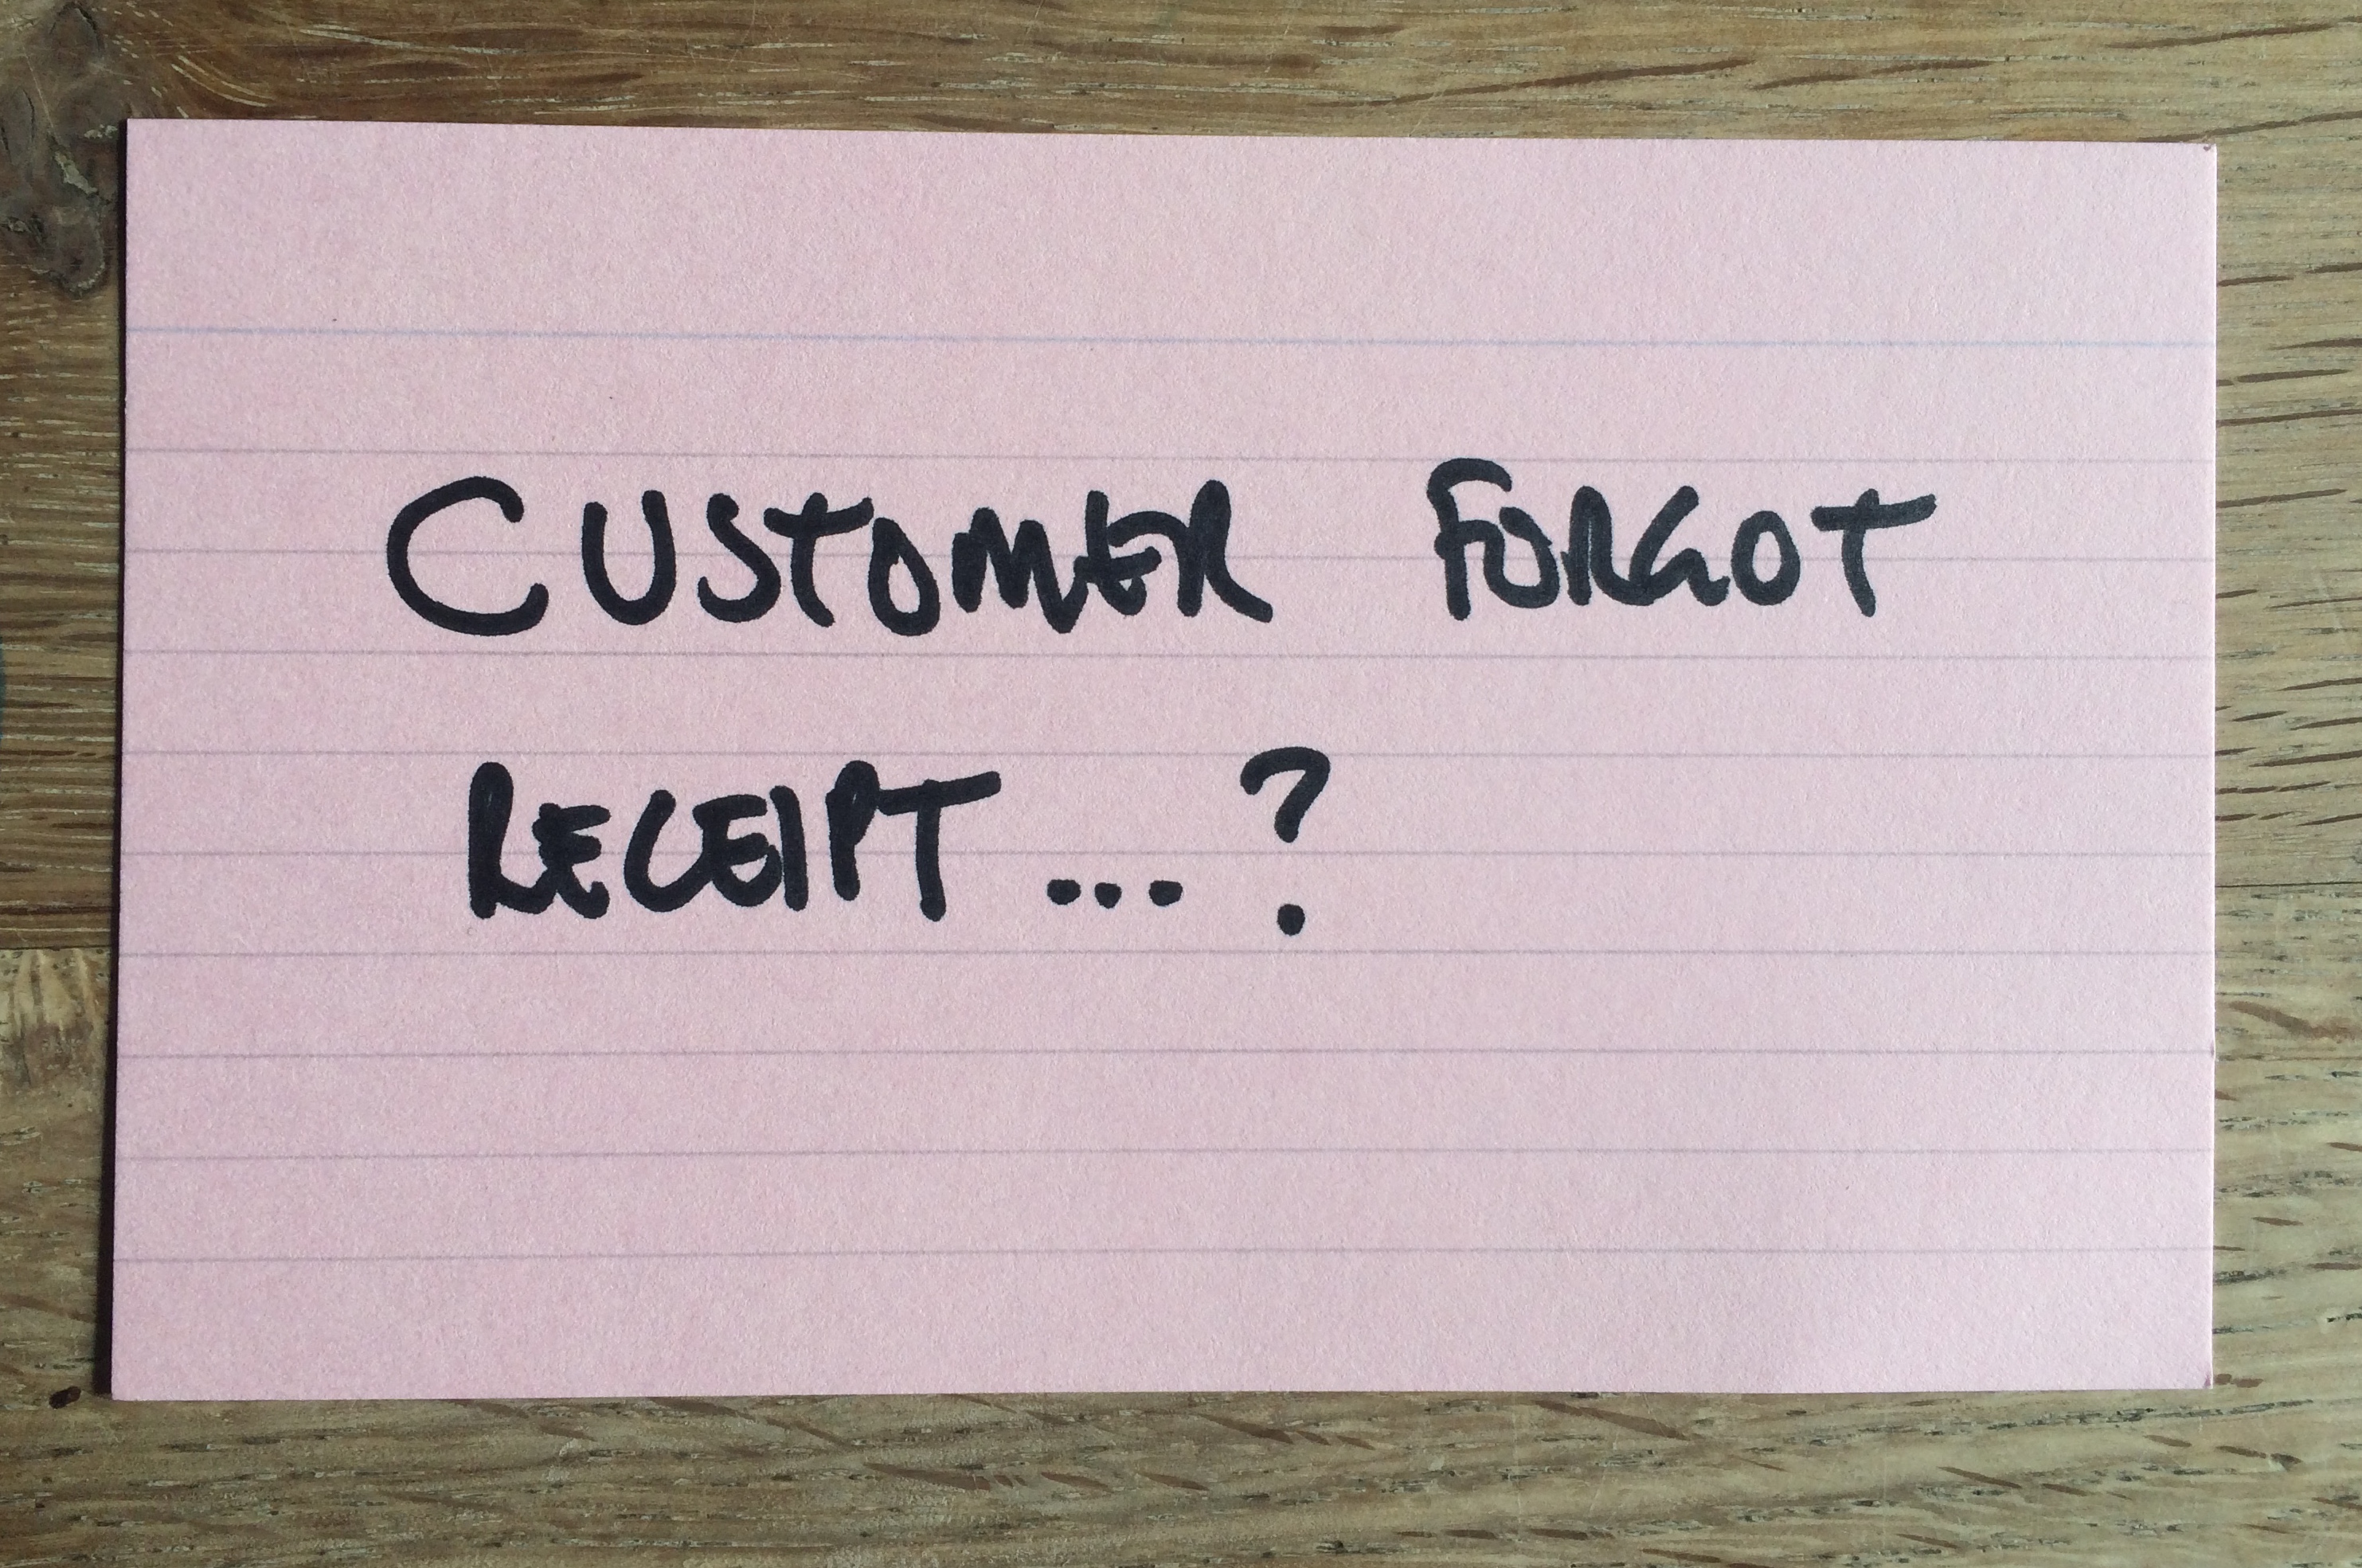 CUSTOMER FORGOT
RECEIPT...?